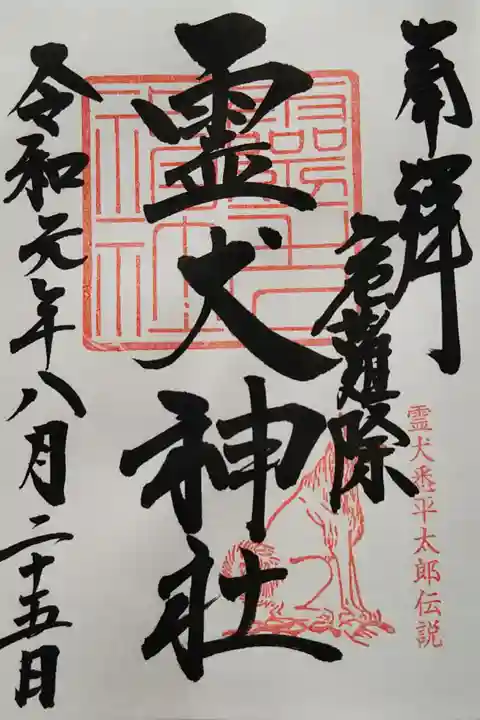 奉拝
厄難除
霊犬悉平太郎伝説
霊犬神社
令和元年八月二十五日